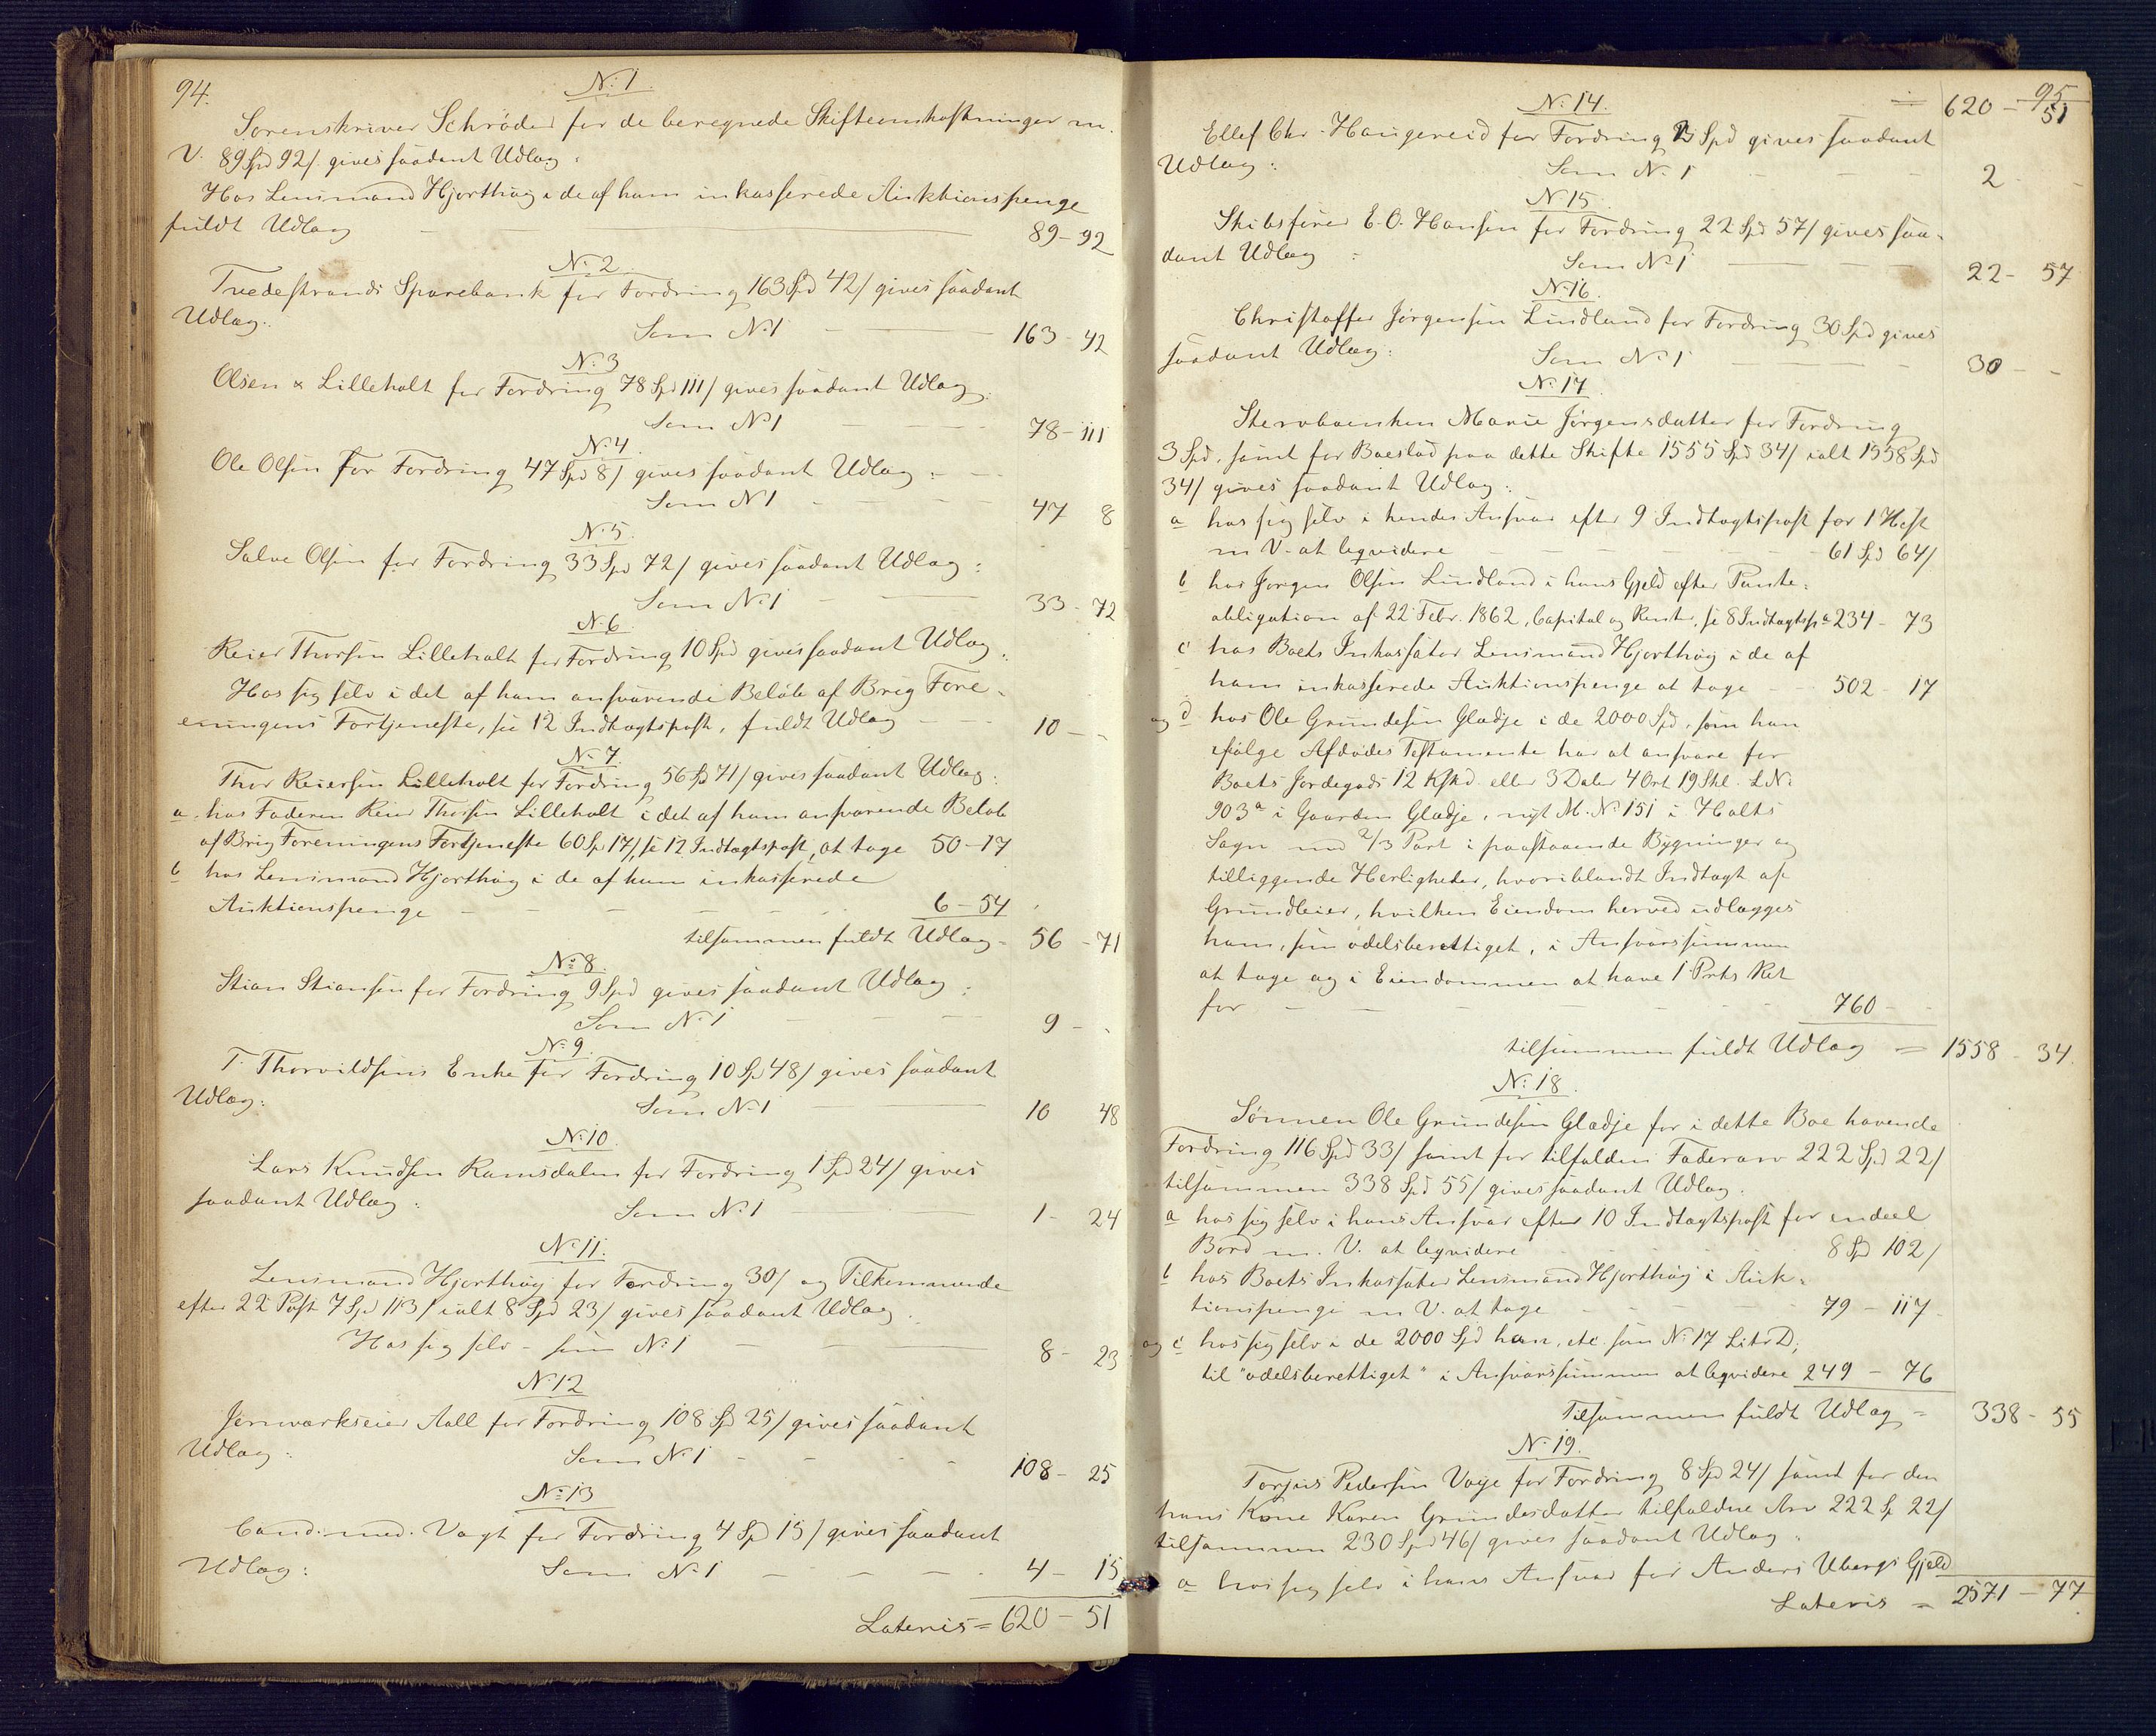 94.
No 1.
Sorenskriver Schröder for de beregnede Skifteomkostninger m.
V. 89 Spd 92/ gives saadant Udlæg:
Hos Lensmand Hjorthøig i de af ham inkasserede Auktionspenge
fuldt Udlæg 89-92
No 2.
Tvedestrands Sparebank for Fordring 163 Spd 42/ gives saadant
Udlæg: Som No 1 163-42
No 3
Olsen & Lilleholt for Fordring 78 Spd 111/ gives saadant Udlæg:
Som No 1 78-111
No 4.
Ole Olsen for Fordring 47 Spd 8/ gives saadant Udlæg:
Som No 1 47 8
No 5.
Salve Olsen for Fordring 33 Spd 72/ gives saadant Udlæg:
Som No 1 33-72
No 6.
Reier Thorsen Lilleholt for Fordring 10 Spd gives saadant Udlæg:
Hos sig selv i det af ham ansvarende Beløb af Brig Fore-
eningens Fortjeneste, se 12 Indtægtspost, fuldt Udlæg 10 - -
No 7.
Thor Reiersen Lilleholt for Fordring 56 Spd 71/ gives saadant Udlæg:
a. hos Faderen Reier Thorsen Lilleholt i det af ham ansvarende Beløb
af Brig Foreningens Fortjeneste 60 Sp 17/, se 12 Indtægtspost, at tage 50-17
b hos Lensmand Hjorthøig i de af ham inkasserede
Auktionspenge 6-54
tilsammen fuldt Udlæg - 56-71
No 8.
Stian Stiansen for Fordring 9 Spd gives saadant Udlæg:
Som No 1 9 -
No 9.
T. Thorvildsens Enke for Fordring 10 Spd 48/ gives saadant
Udlæg: Som No 1 10 48
No 10.
Lars Knudsen Ramsdalen for Fordring 1 Spd 24/ gives
saadant Udlæg: Som No 1 1-24
No 11.
Lensmand Hjorthøig for Fordring 30/ og Tilkommende
efter 22 Post 7 Spd 113/ ialt 8 Spd 23/ gives saadant Udlæg:
Hos sig selv - som No 1 8-23
No 12
Jernværkseier Aall for Fordring 108 Spd 25/ gives saadant
Udlæg: Som No 1 108-25
No 13
Cand. med. Vogt for Fordring 4 Spd 15/ gives saadant
Udlæg: Som No 1 4-15
Lateris = 620-51
95
No 14. = 620-51
Ellef Chr. Haugereid for Fordring 2 Spd gives saadant
Udlæg: Som No 1 2 -
No 15.
Skibsfører E. O. Hansen for Fordring 22 Spd 57/ gives saa-
dant Udlæg: Som No 1 22-57
No 16.
Christoffer Jörgensen Lindland for Fordring 30 Spd gives
saadant Udlæg: Som No 1 30 - -
No 17.
Stervboenken Marie Jörgensdatter for Fordring
3 Spd. samt for Boeslod paa dette Skifte 1555 Spd 34/ ialt 1558 Spd
34/ gives saadant Udlæg:
a hos sig selv i hendes Ansvar efter 9 Indtægtspost for 1 Hest
m V. at leqvidere 61 Spd 64/
b hos Jörgen Olsen Lindland i hans Gjeld efter Pante-
obligation af 22 Febr. 1862, Capital og Renter, se 8 Indtægtsp. a 234-73
c hos Boets Inkassator Lensmand Hjorthøig i de af
ham inkasserede Auktionspenge at tage 502-17
og d hos Ole Grundesen Glædje i de 2000 Spd, som han
ifølge Afdødes Testamente har at ansvare for
Boets Jordegods 12 Kskd. eller 3 Daler 4 Ort 19 Skl. L.No.
903a i Gaarden Glædje, nyt M. No 151 i Holts
Sogn med 2/3 Part i paastaaende Bygninger og
tilliggende Herligheder, hvoriblandt Indtægt af
Grundleier, hvilken Eiendom herved udlægges
ham, som odelsberettiget, i Ansvarssummen
at tage og i Eiendommen at have 1 Prts Ret
for 760 -
tilsammen fuldt Udlæg = 1558-34.
No 18.
Sønnen Ole Grundesen Glædje for i dette Boe havende
Fordring 116 Spd 33/ samt for tilfalden Faderarv 222 Spd 22/
tilsammen 338 Spd 55/ gives saadant Udlæg.
a hos sig selv i hans Ansvar efter 10 Indtægtspost for endeel
Bord m. V. at leqvidere 8 Spd 102/
b hos Boets Inkassator Lensmand Hjorthøig i Auk-
tionspenge m V. at tage 79-117
og c hos sig selv i de 2000 Spd han, etc. som No 17 Litr D,
til "odelsberettiget" i Ansvarssummen at leqvidere 249-76
Tilsammen fuldt Udlæg = 338-55
No 19.
Torjus Pedersen Vaje for Fordring 8 Spd 24/ samt for den
hans Kone Karen Grundesdatter tilfaldne Arv 222 Sp 22/
tilsammen 230 Spd 46/ gives saadant Udlæg:
a hos sig selv i hans Ansvar for Anders Ubergs Gjeld
Lateris = 2571-77